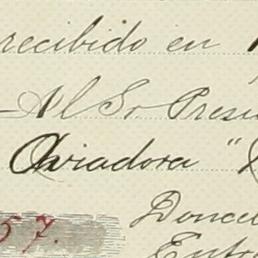 recibido en
Al Sr Presi
Aviadora "
57.
Doncel
Entre